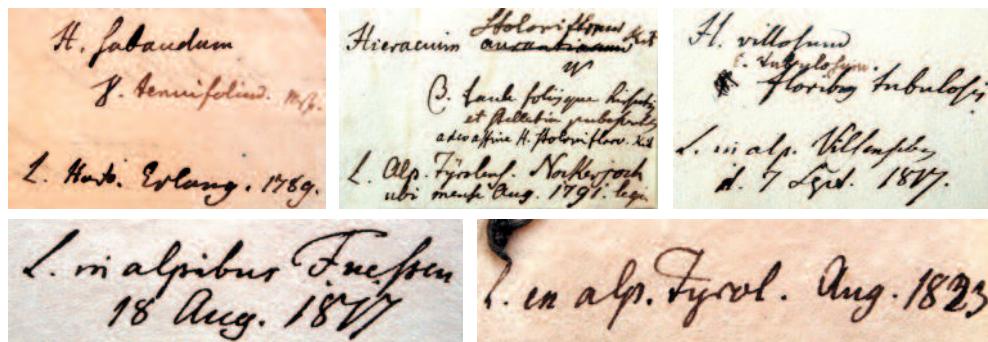 H. sabaudum
γ. tenuifolium.
L. Hort. Erlang. 1789.
stoloniflorum Kit
Hieracium aurantiacum
β. Caule foliisque hispidis
et stellatim pubescentibus
adeo affine H. stolonifloro. Kit
L. Alp. Tÿrolens. Nockerjoch
ubi mense Aug. 1791. legi
H. villosum
ε. tubulosum.
floribus tubulosis
L. in alp. Vilsensibus
d. 7 Sept. 1817.
L. in alpibus Fuessen
18 Aug. 1817
L. en alp. Tyrol. Aug. 1823